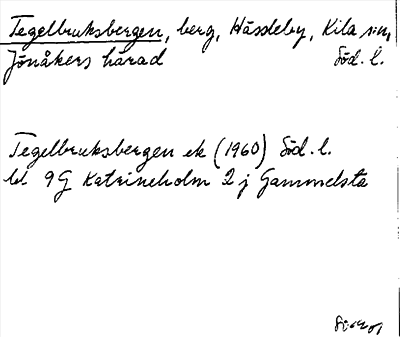 Tegelbruksbergen, berg, Hässleby, Kila sn,
Jönåkers härad Söd. l.
Tegelbruksbergen ek (1960) Söd. l.
bl 9G Katrineholm 2 j Gammelsta